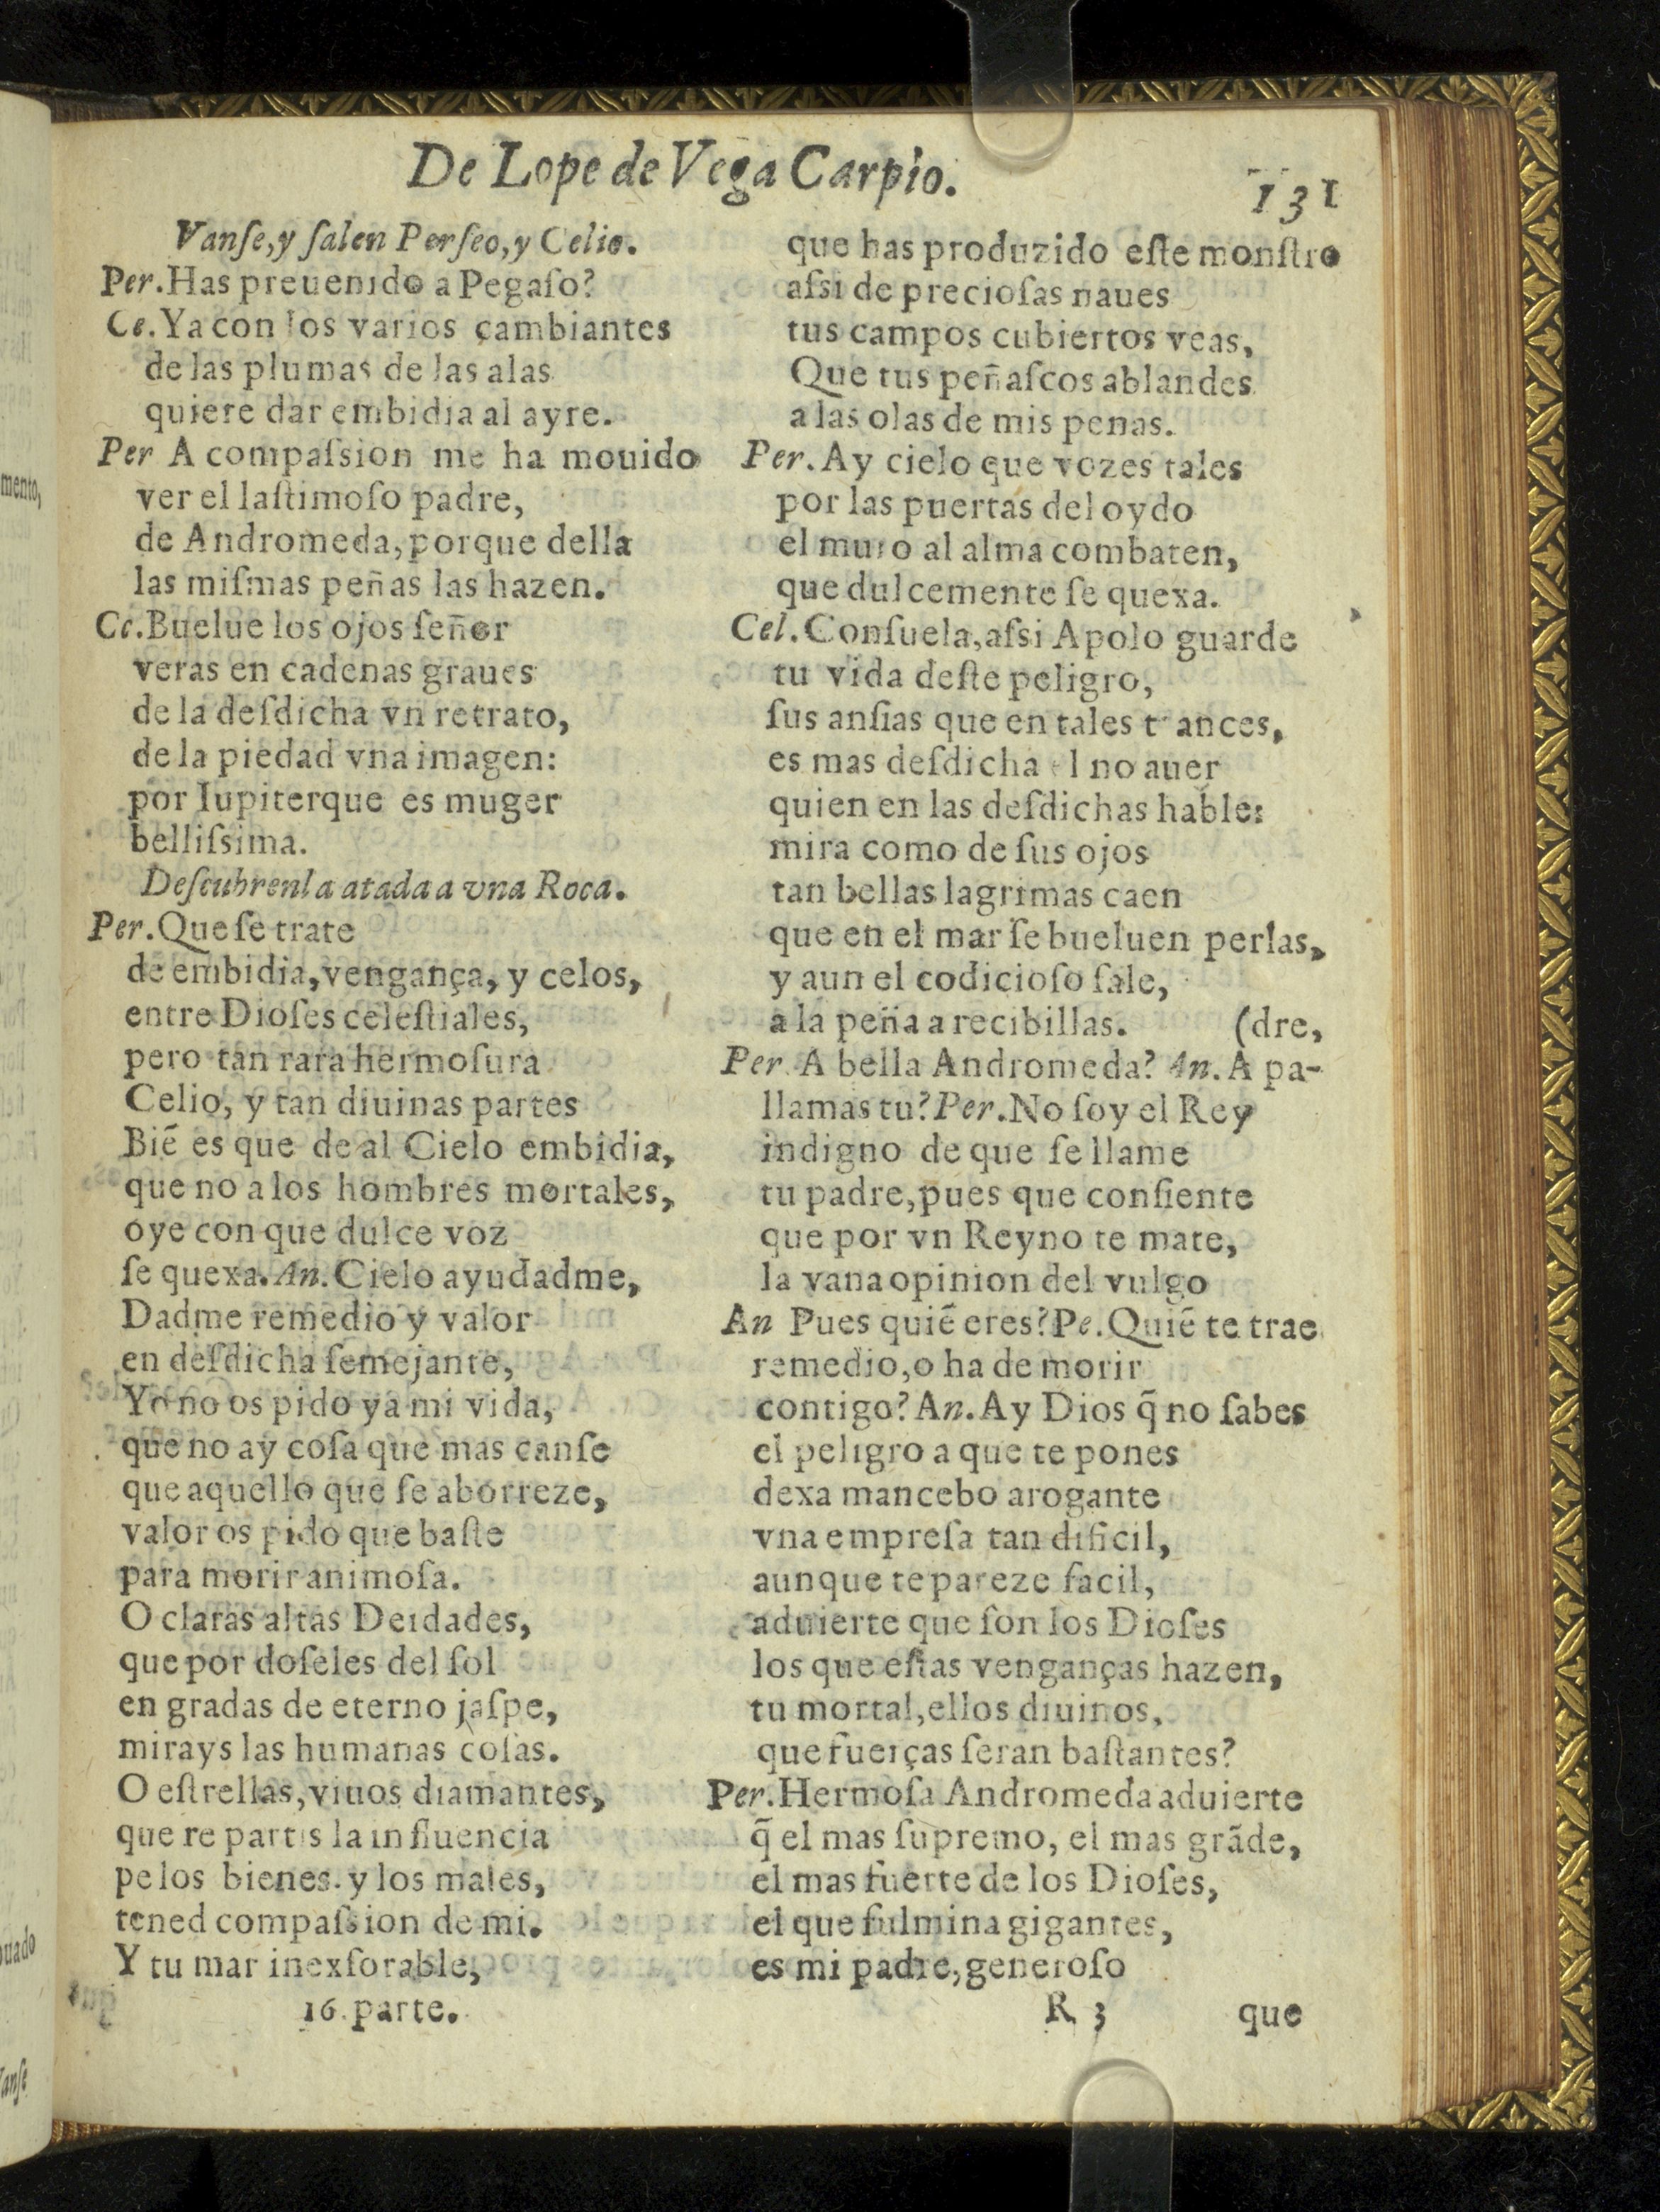 De Lope de Vega Carpio.
131
Vanſe,y ſalen Perſeo,y Celio.
Per.Has preuenido a Pegaſo?
Ce.Ya con los varios çambiantes
de las plumas de las alas
quiere dar embidia al ayre.
Per A compaſsion me ha mouido
ver el laſtimoſo padre,
de Andromeda,porque della
las miſmas peñas las hazen.
Ce.Buelue los ojos ſeñor
veras en cadenas graues
de la deſdicha vn retrato,
de la piedad vna imagen:
por Iupiterque es muger
belliſsima.
Deſcubrenla atada a vna Roca.
Per.Que ſe trate
de embidia,vengança, y celos,
entre Dioſes celeſtiales,
pero tan rara hermoſura
Celio, y tan diuinas partes
Biẽ es que de al Cielo embidia,
que no a los hombres mortales,
oye con que dulce voz
ſe quexa.An.Cielo ayudadme,
Dadme remedio y valor
en deſdicha ſemejante,
Yo no os pido ya mi vida,
que no ay coſa que mas canſe
que aquello que ſe aborreze,
valor os pido que baſte
para morir animoſa.
O claras altas Deidades,
que por doſeles del ſol
en gradas de eterno jaſpe,
mirays las humanas coſas.
O eſtrellas,viuos diamantes,
que repartis la influencia
pelos bienes. y los males,
tened compaſsion de mi.
Y tu mar inexſorable,
16.parte.
que has produzido eſte monſtro
aſsi de precioſas naues
tus campos cubiertos veas,
Que tus peñaſcos ablandes
a las olas de mis penas.
Per.Ay cielo que vozes tales
por las puertas del oydo
el muro al alma combaten,
que dulcemente ſe quexa.
Cel.Conſuela,aſsi Apolo guarde
tu vida deſte peligro,
ſus anſias que en tales trances,
es mas deſdicha el no auer
quien en las deſdichas hable:
mira como de ſus ojos
tan bellas lagrimas caen
que en el mar ſe bueluen perlas,
y aun el codicioſo ſale,
a la peña a recibillas. (dre,
Per.A bella Andromeda? An.A pa-
llamas tu?Per.No ſoy el Rey
indigno de que ſe llame
tu padre,pues que conſiente
que por vn Reyno te mate,
la vana opinion del vulgo
An Pues quiẽ eres?Pe.Quiẽ te trae
remedio,o ha de morir
contigo?An.Ay Dios q̃ no ſabes
el peligro a que te pones
dexa mancebo arogante
vna empreſa tan dificil,
aunque te pareze facil,
aduierte que ſon los Dioſes
los que eſtas venganças hazen,
tu mortal,ellos diuinos,
que fuerças ſeran baſtantes?
Per.Hermoſa Andromeda aduierte
q̃ el mas ſupremo, el mas grãde,
el mas fuerte de los Dioſes,
el que fulmina gigantes,
es mi padre,generoſo
R 3
que
mento,
Vanſe